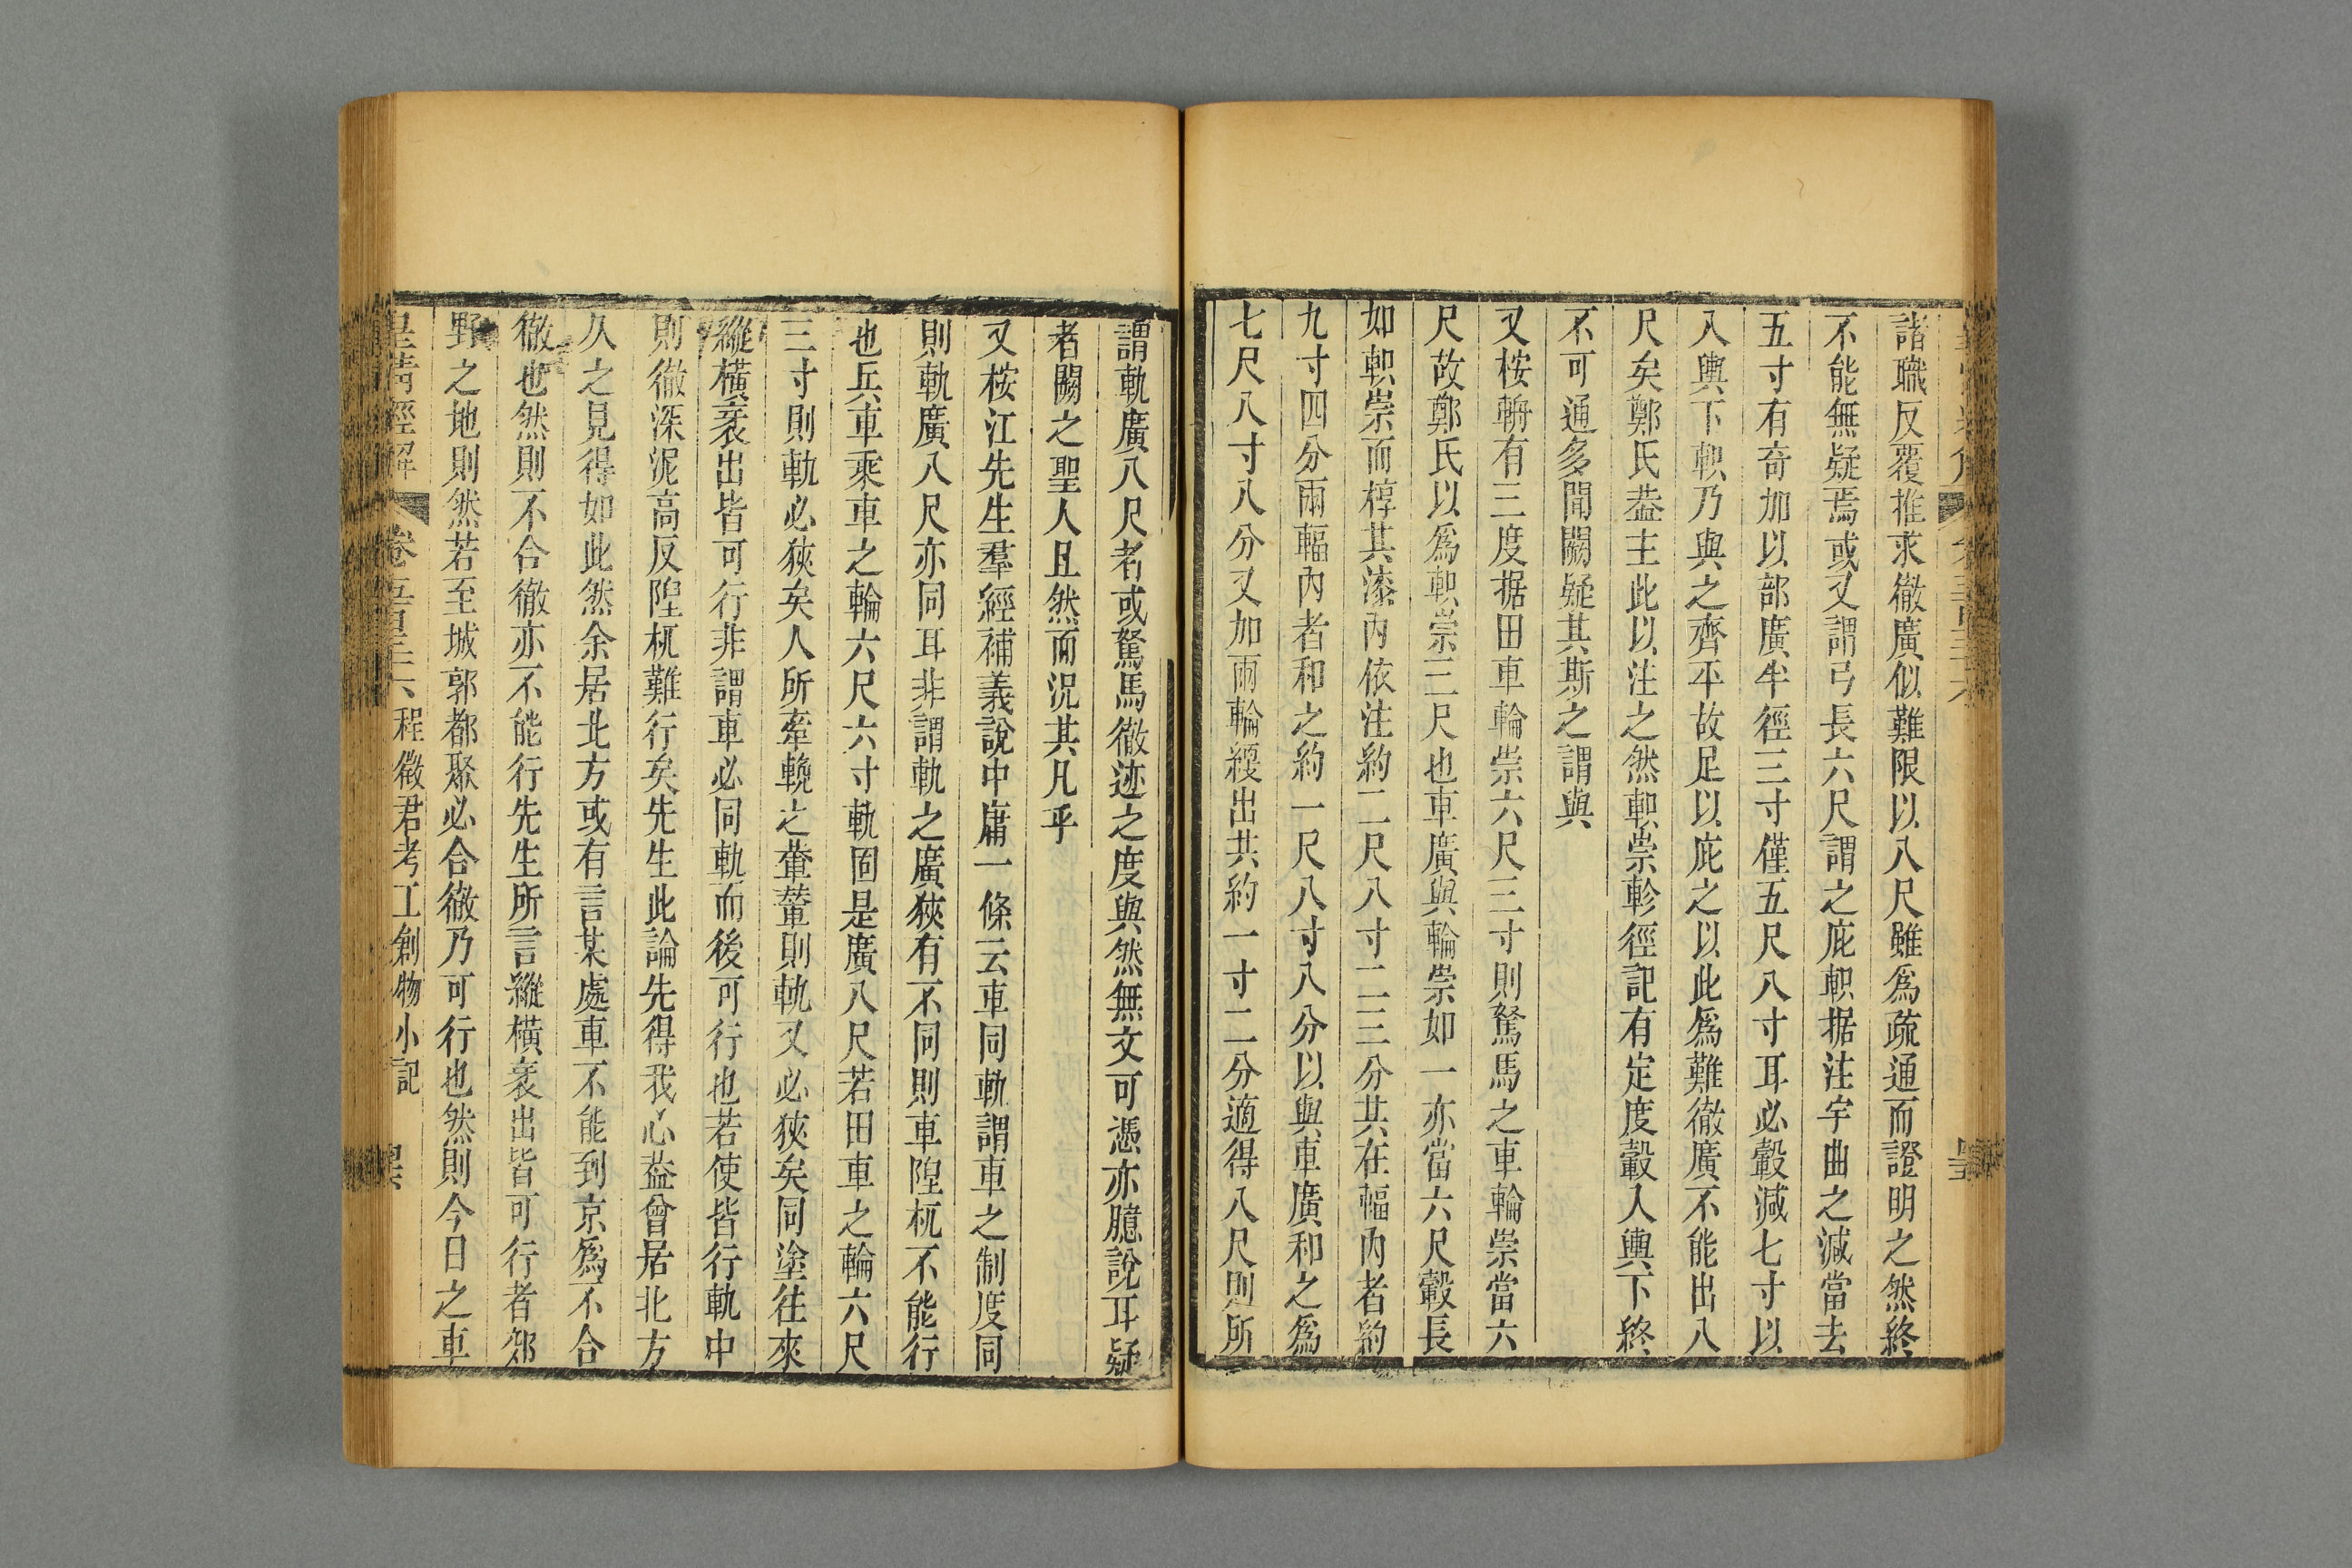 諸職反覆推求徹廣似難限以八尺雖爲疏通而證明之然終
不能無疑焉或又謂弓長六尺謂之庇軹据注宇曲之減當去
五寸有奇加以部廣半徑三寸僅五尺八寸耳必轂減七寸以
入輿下軹乃與之齊平故足以庇之以此爲難徹廣不能出八
尺矣鄭氏葢主此以注之然軹崇軫徑記有定度轂入輿下終
不可通多聞闕疑其斯之謂與
又桉輈有三度据田車輪崇六尺三寸則駑馬之車輪崇當六
尺故鄭氏以爲軹崇三尺也車廣與輪崇如一亦當六尺轂長
如軹崇而椁其漆內依注約二尺八寸二三分其在輻內者約
九寸四分兩輻內者和之約一尺八寸八分以與車廣和之爲
七尺八寸八分又加兩輪綆出共約一寸二分適得八尺則所
謂軌廣八尺者或駑馬徹迹之度與然無文可憑亦臆說耳疑
者闕之聖人且然而況其凡乎
又桉江先生羣經補義說中庸一條云車同軌謂車之制度同
則軌廣八尺亦同耳非謂軌之廣狹有不同則車陧杌不能行
也兵車乘車之輪六尺六寸軌固是廣八尺若田車之輪六尺
三寸則軌必狹矣人所牽輓之輂輦則軌又必狹矣同塗往來
縱橫袤出皆可行非謂車必同軌而後可行也若使皆行軌中
則徹深泥高反陧杌難行矣先生此論先得我心葢曾居北方
久之見得如此然余居北方或有言某處車不能到京爲不合
徹也然則不合徹亦不能行先生所言縱橫袤出皆可行者郊
野之地則然若至城郭都聚必合徹乃可行也然則今日之車
皇清經解 卷五百三十六 程徵君考工創物小記